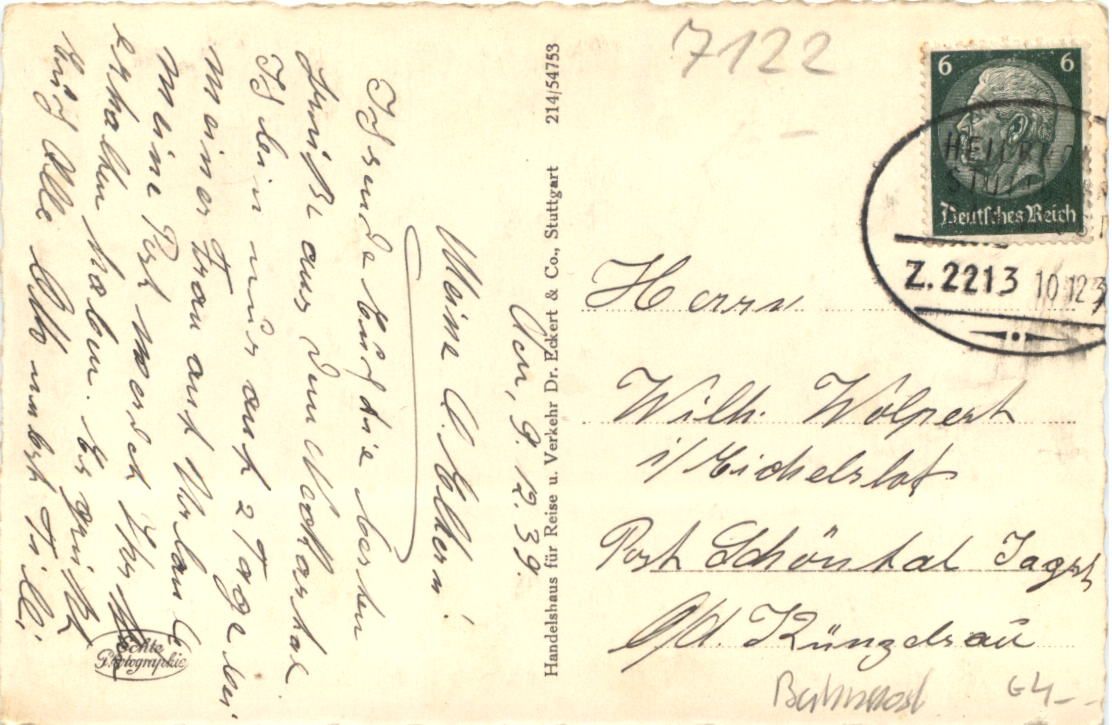 7122
6 6
Deutsches Reich
HEILBRO
STUTT
Z. 2213 10.12.3
Herrn
Wilh. Wolpert
i/ Eichelshof
Post Schöntal Jagst
O/A. Künzelsau
Bahnpost
64-
Handelshaus für Reise u. Verkehr Dr. Eckert & Co., Stuttgart 214/54753
Den, 9. 12. 39.
Meine l. Eltern!
Ich sende Euch die besten
Grüße aus dem Neckartal.
Ich bin nur auf 2 Tage bei
meiner Frau auf Urlaub
meine Post werdet Ihr
erhalten haben. Es grüßt
Euch Alle Otto nebst Tilli
Echte
Photographie